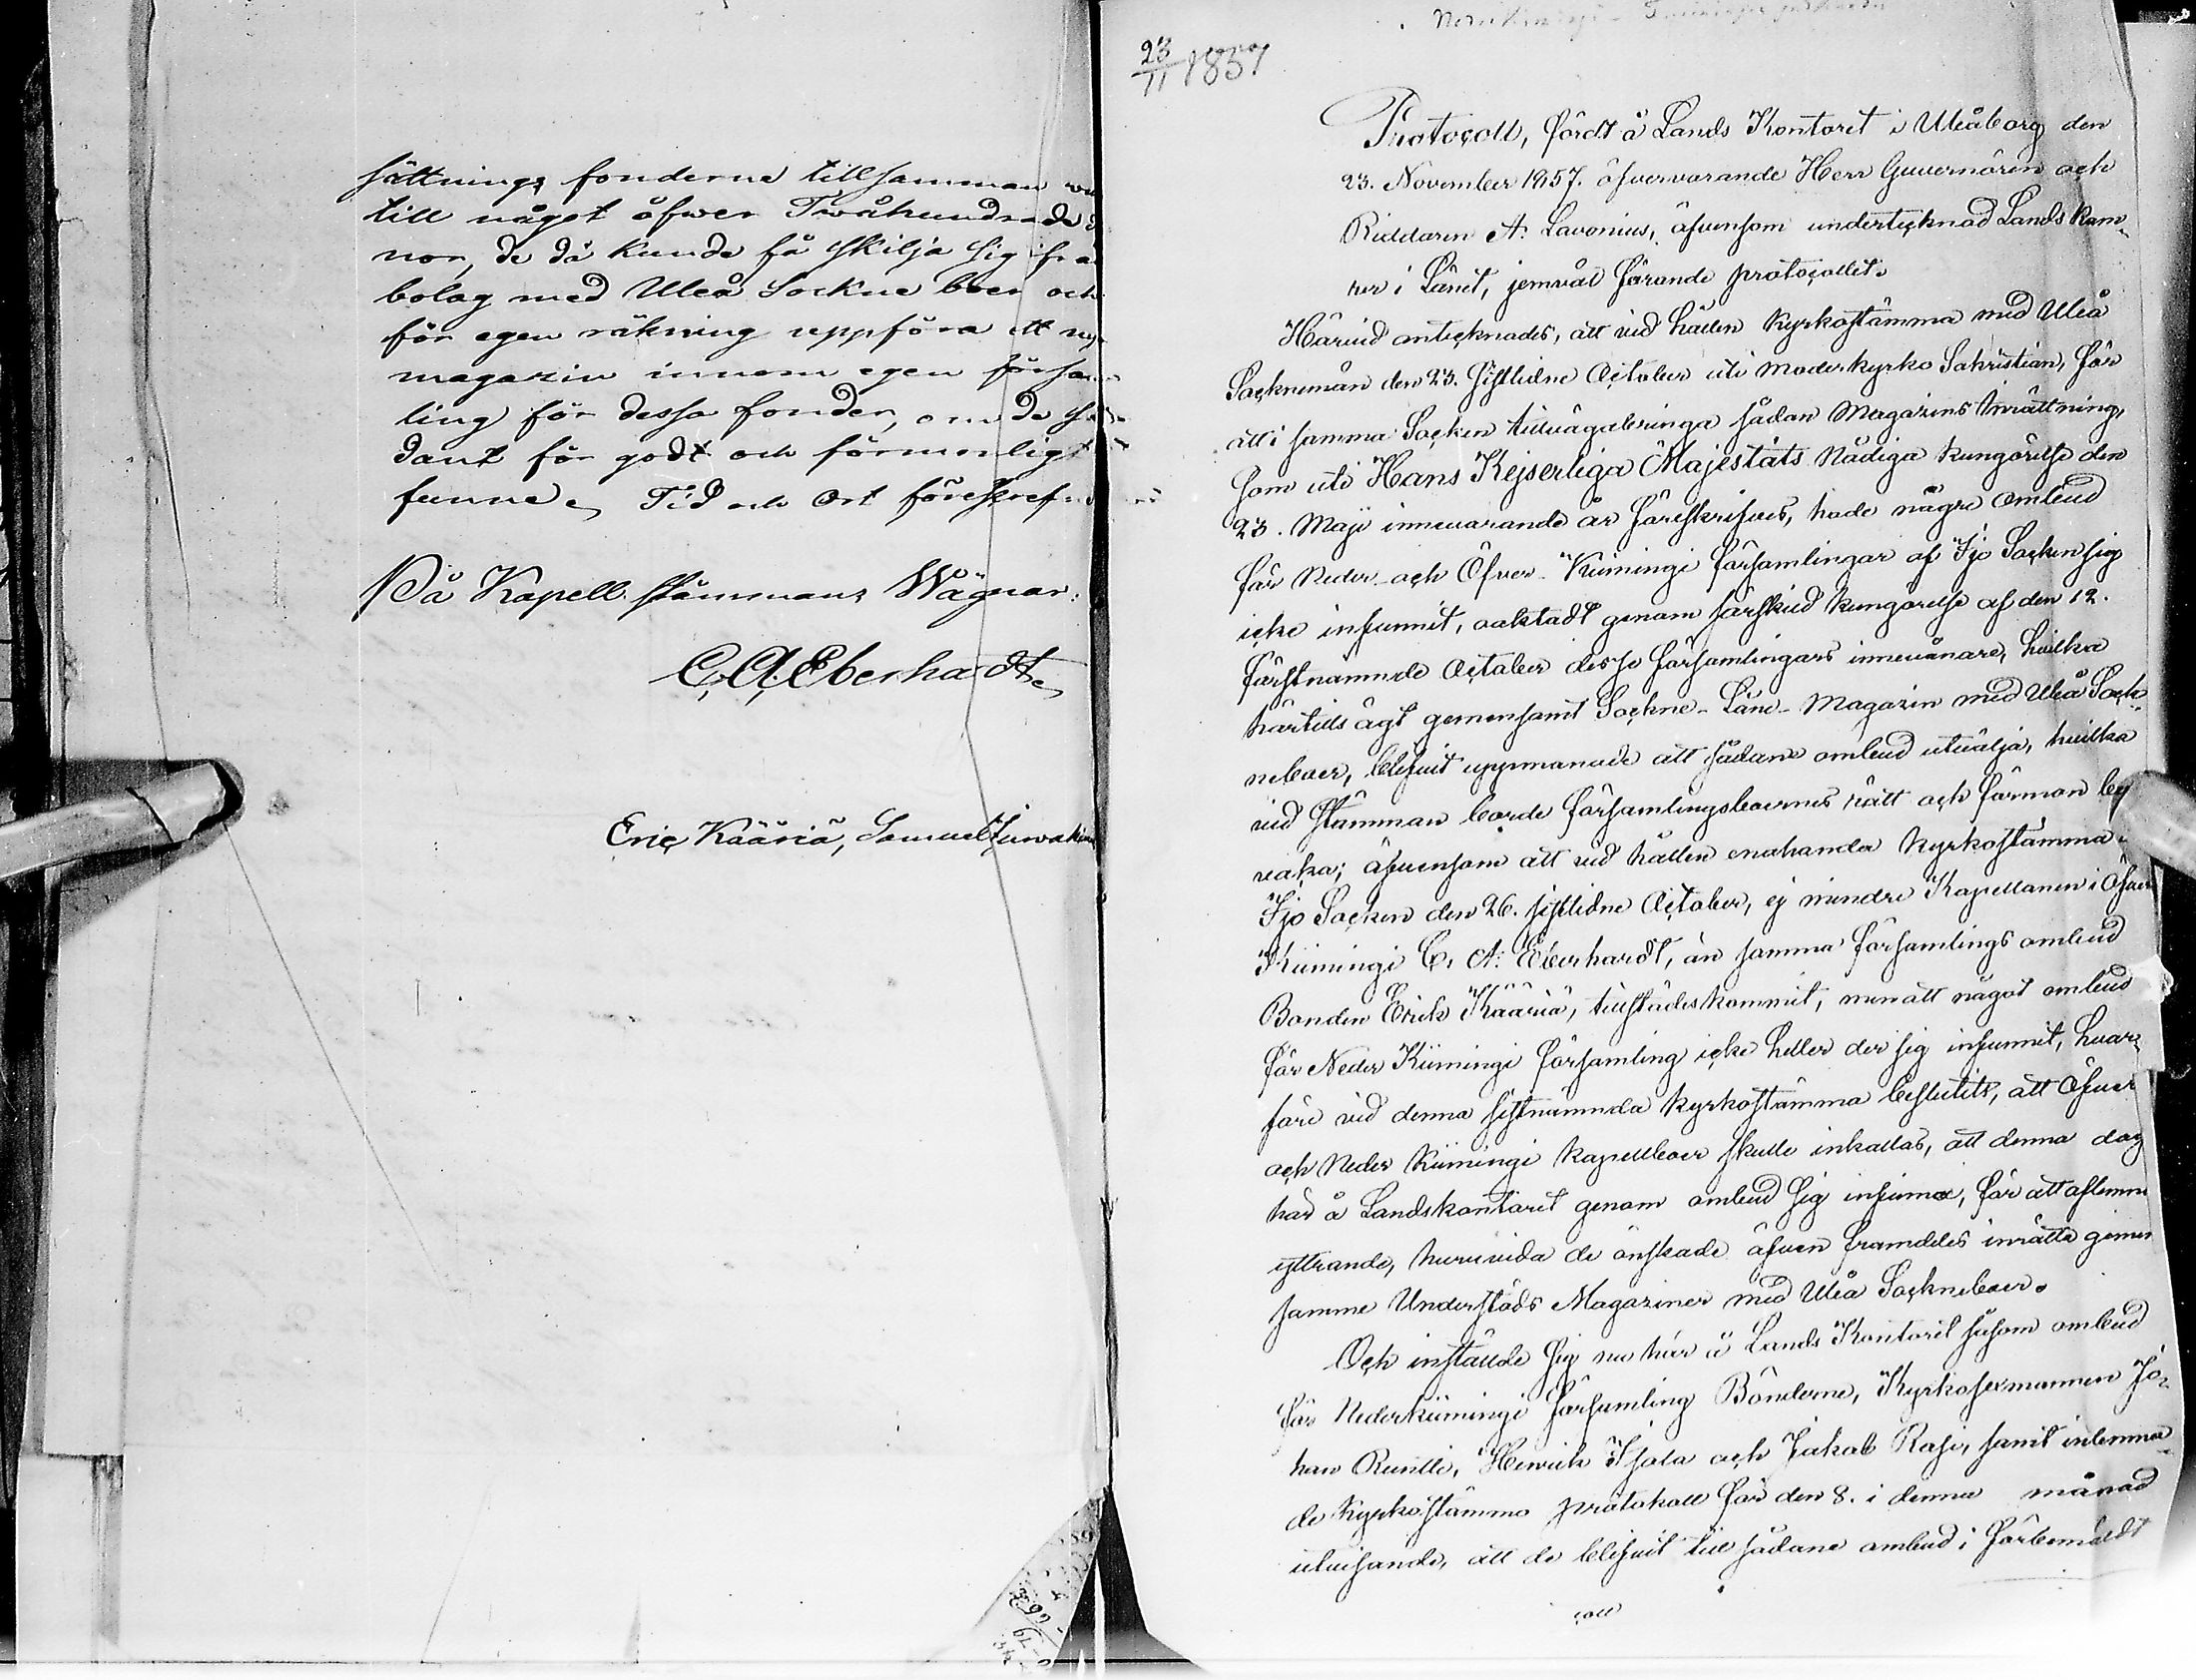 sättnings fonderna tillsamman
till något öfwer Twåhundrade
nor, de då kunde få skilja sig ifrå
bolag med Uleå Sockne boer och
för egen räkning uppföra ett
magazin innom egen försam
ling för dessa fonder, om de så
dant för godt och förmonligt
funne. Tid och Ort föreskref
På Kapell stämmans Wägnar:
C. A. Eberhardt.
Eric Kääriä, Samuel
23/11 1857
Protocoll, fördt å Lands Kontoret i Uleåborg den
23. November 1857. öfvervarande Herr Guvernören och
Riddaren A: Lavonius, äfvensom undertecknad Lands Kam¬
rer i Länet, jemväl förande protocollet.
Härvid antecknades, att vid hållen Kyrkostämma med Uleå
Sockneman den 23. sistlidne October uti moderkyrko Sakristian, för
att i samma Socken tillvägabringa sådan Magazins Inrättning,
som uti Hans Kejserliga Majestäts Nådiga kungörelse den
23. Maji innevarande år föreskrifves, hade någre ombud
för Neder- och Öfver- Kiimingi församlingar af Ijo Socken sig
icke infunnit, oaktadt genom särskild kungörelse af den 12.
förstnämnde October desse församlingars innevånare, hvilka
härtills ägt gemensamt Sockne- Låne- Magazin med Uleå Sock¬
neboer, blifvit uppmanade att sådane ombud utvälja, hvilka
vid stämman borde församlingsboernes rätt och förmon be
vaka; äfvensom att vid hållen enahanda kyrkostämma i
Ijo Socken den 26. sistlidne October, ej mindre Kapellanen i Öfver
Kiimingi C. A: Eberhardt, än samma församlings ombud
Bonden Erik Kääriä, tillstädeskommit, men att något ombud
för Neder Kiimingi församling icke heller der sig infunnit, hvar¬
före vid denna sistnämnda kyrkostämma beslutits, att Öfver
och Neder Kiimingi kapellboer skulle inkallas, att denna dag
här å Landskontoret genom ombud sig infinna, för att aflemna
yttrande, huruvida de önskade äfven framdeles inrätta gemen
samme Understöds Magaziner med Uleå Sockneboer.
Och inställde sig nu här å Lands Kontoret såsom ombud
för Nederkiimingi församling Bönderne, Kyrkosexmannen Jo¬
han Runtti, Henrik Isola och Jakob Rasi, samt inlemna¬
de kyrkostämmo protokoll för den 8. i denna månad
utvisande, att de blifvit till sådane ombud i förbemäldt